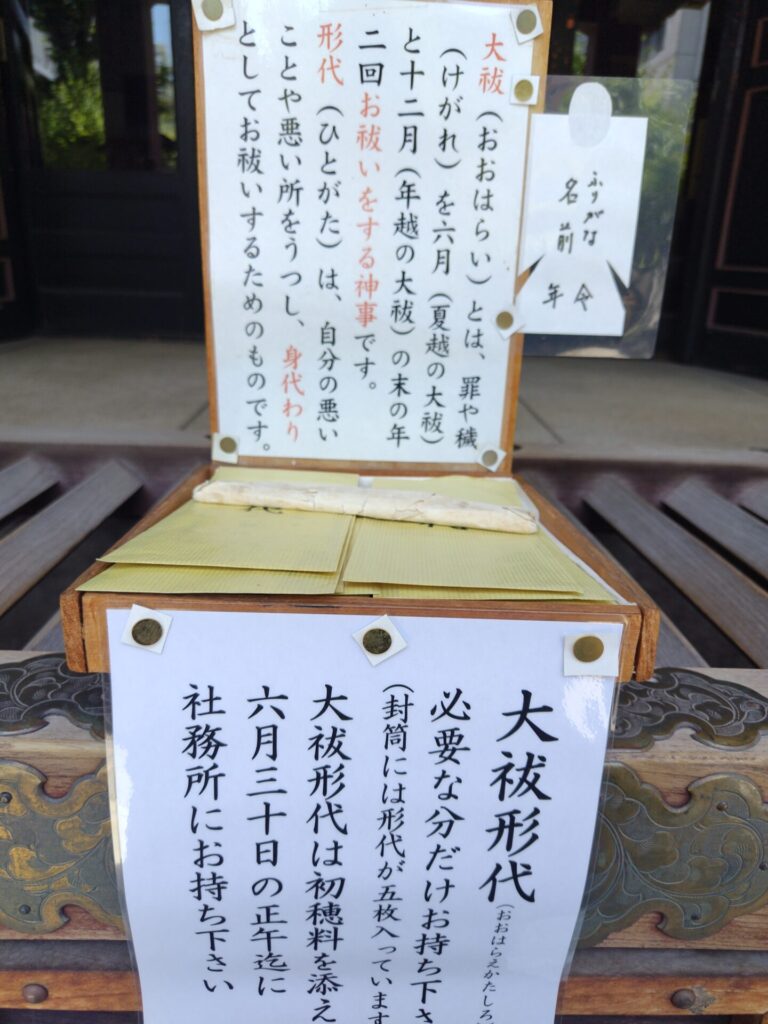 大祓（おおはらい）とは、罪や穢
（けがれ）を六月（夏越の大祓）
と十二月（年越の大祓）の末の年
二回お祓いをする神事です。
形代（ひとがた）は、自分の悪い
ことや悪い所をうつし、身代わり
としてお祓いするためのものです。
ふりがな
名前
今年
大祓形代（おおはらえかたしろ
必要な分だけお持ち下さ
（封筒には形代が五枚入っています
大祓形代は初穂料を添え
六月三十日の正午迄に
社務所にお持ち下さい